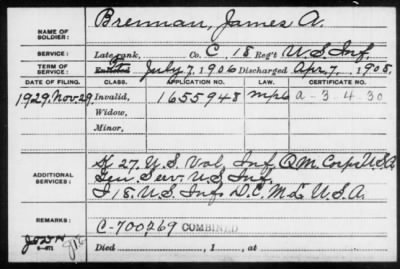 NAME OF SOLDIER: Brennan, James A.
SERVICE: Late rank, Co. C, 18 Reg't U.S. Inf.
TERM OF SERVICE: Enlisted July 7, 1906 Discharged Apr. 7, 1908.
DATE OF FILING. CLASS. APPLICATION NO. LAW. CERTIFICATE NO.
1929. Nov. 29. Invalid, 1655948 a-3-4-30
Widow,
Minor,
ADDITIONAL SERVICES: K 27. U.S. Vol. Inf. Q.M. Corps U.S.A.
Gen Serv. U.S. Inf.
I 18. U.S. Inf. D.E.M.L. U.S.A.
REMARKS: C-700269 COMBINED
Died , 1 , at